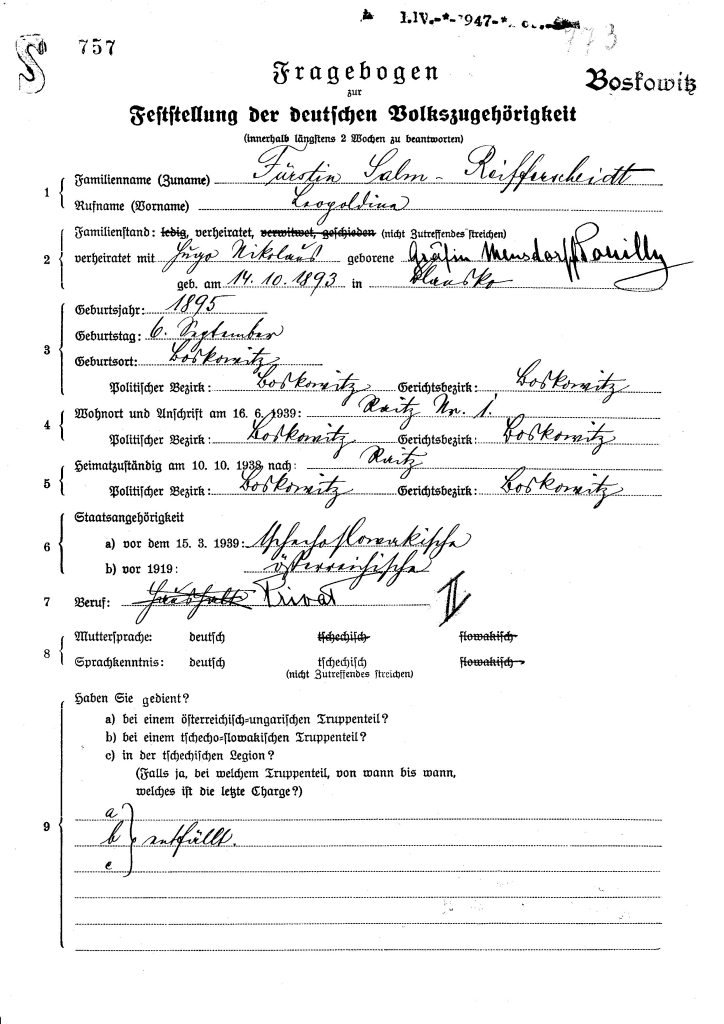 1.IV.-*-1947-*
773
S 757
Boskowitz
Fragebogen
zur
Feststellung der deutschen Volkszugehörigkeit
(innerhalb längstens 2 Wochen zu beantworten)
1 Familienname (Zuname) Fürstin Salm-Reifferscheidt
Rufname (Vorname) Leopoldina
Familienstand: ledig, verheiratet, verwitwet, geschieden (nicht Zutreffendes streichen)
2 verheiratet mit Hugo Nikolaus geborene Gräfin Mensdorff Pouilly
geb. am 14.10.1893 in Blansko
Geburtsjahr: 1895
Geburtstag: 6. September
3 Geburtsort: Boskowitz
Politischer Bezirk: Boskowitz Gerichtsbezirk: Boskowitz
4 Wohnort und Anschrift am 16. 6. 1939: Raitz Nr. 1.
Politischer Bezirk: Boskowitz Gerichtsbezirk: Boskowitz
Heimatzuständig am 10. 10. 1938 nach: Raitz
5 Politischer Bezirk: Boskowitz Gerichtsbezirk: Boskowitz
Staatsangehörigkeit
6 a) vor dem 15. 3. 1939: tschechoslowakische
b) vor 1919: österreichische
7 Beruf: Haushalt Privat II
Muttersprache: deutsch tschechisch slowakisch
8 Sprachkenntnis: deutsch tschechisch slowakisch
(nicht Zutreffendes streichen)
Haben Sie gedient?
a) bei einem österreichisch-ungarischen Truppenteil?
b) bei einem tschecho-slowakischen Truppenteil?
c) in der tschechischen Legion?
(Falls ja, bei welchem Truppenteil, von wann bis wann,
welches ist die letzte Charge?)
a
9 b entfällt.
c